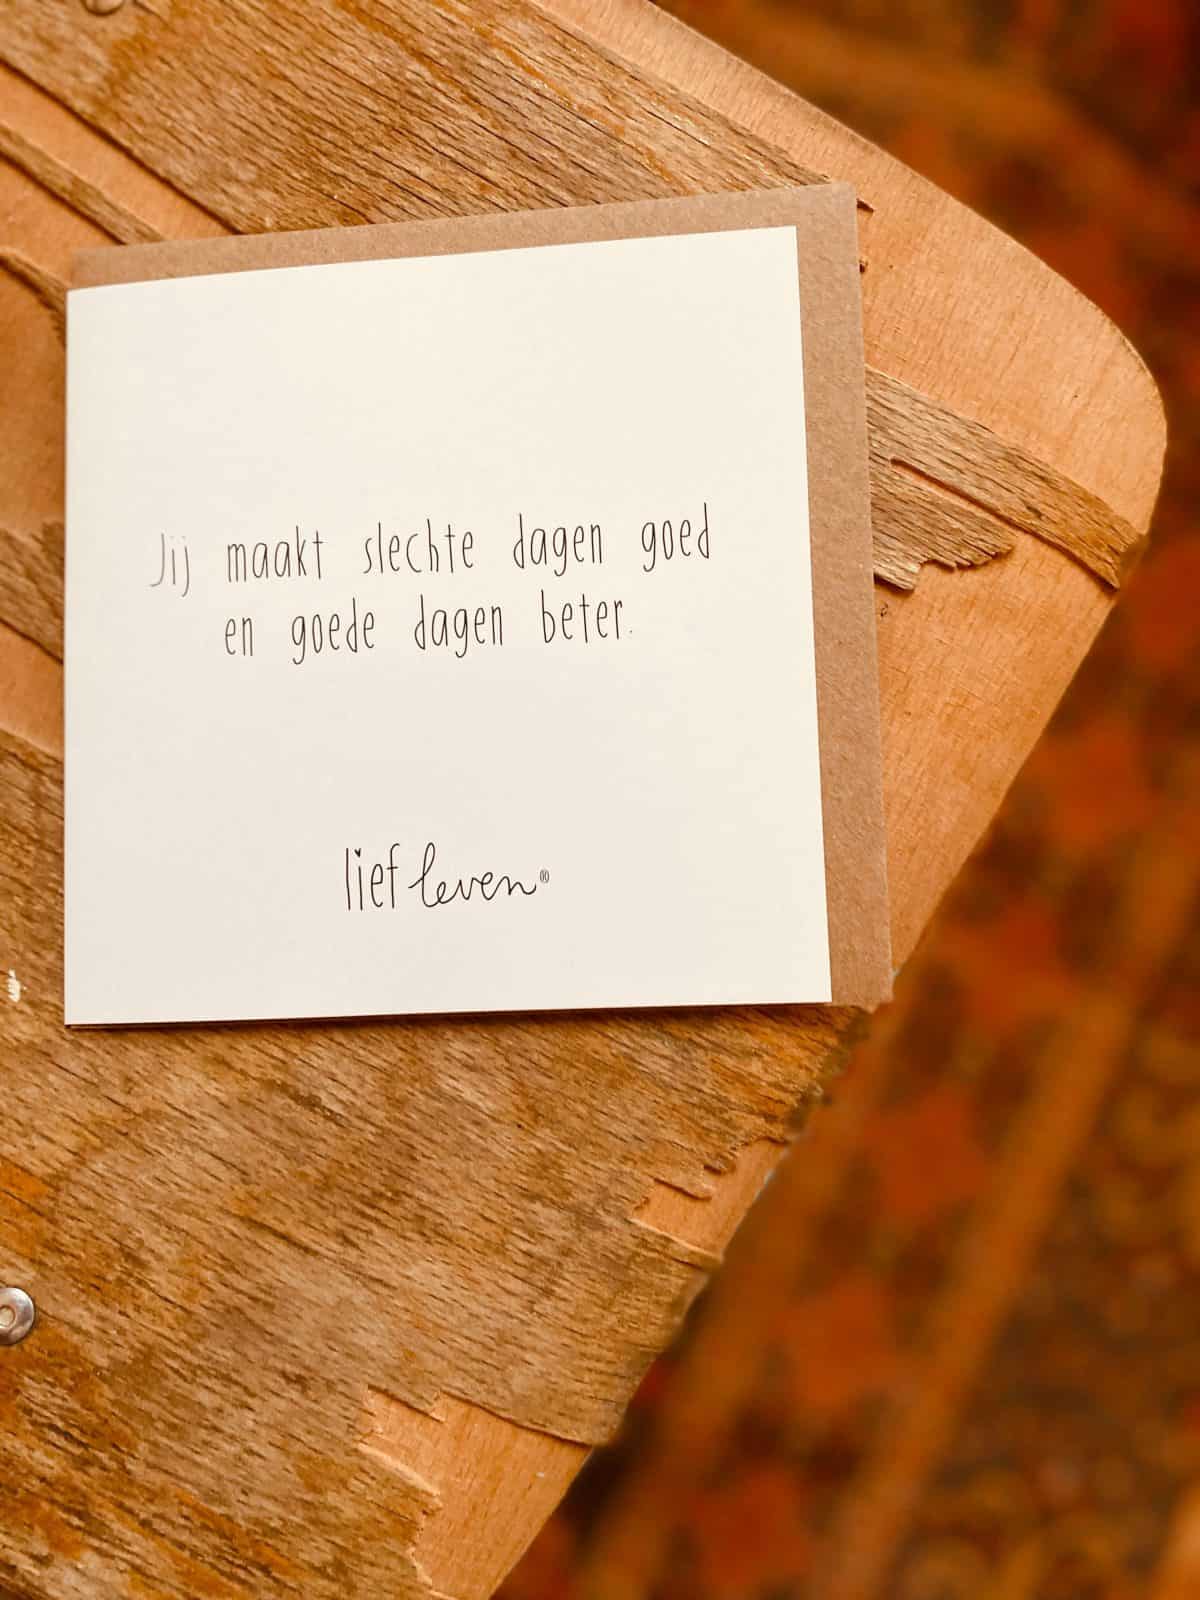 Jij maakt slechte dagen goed
en goede dagen beter.
lief leven®